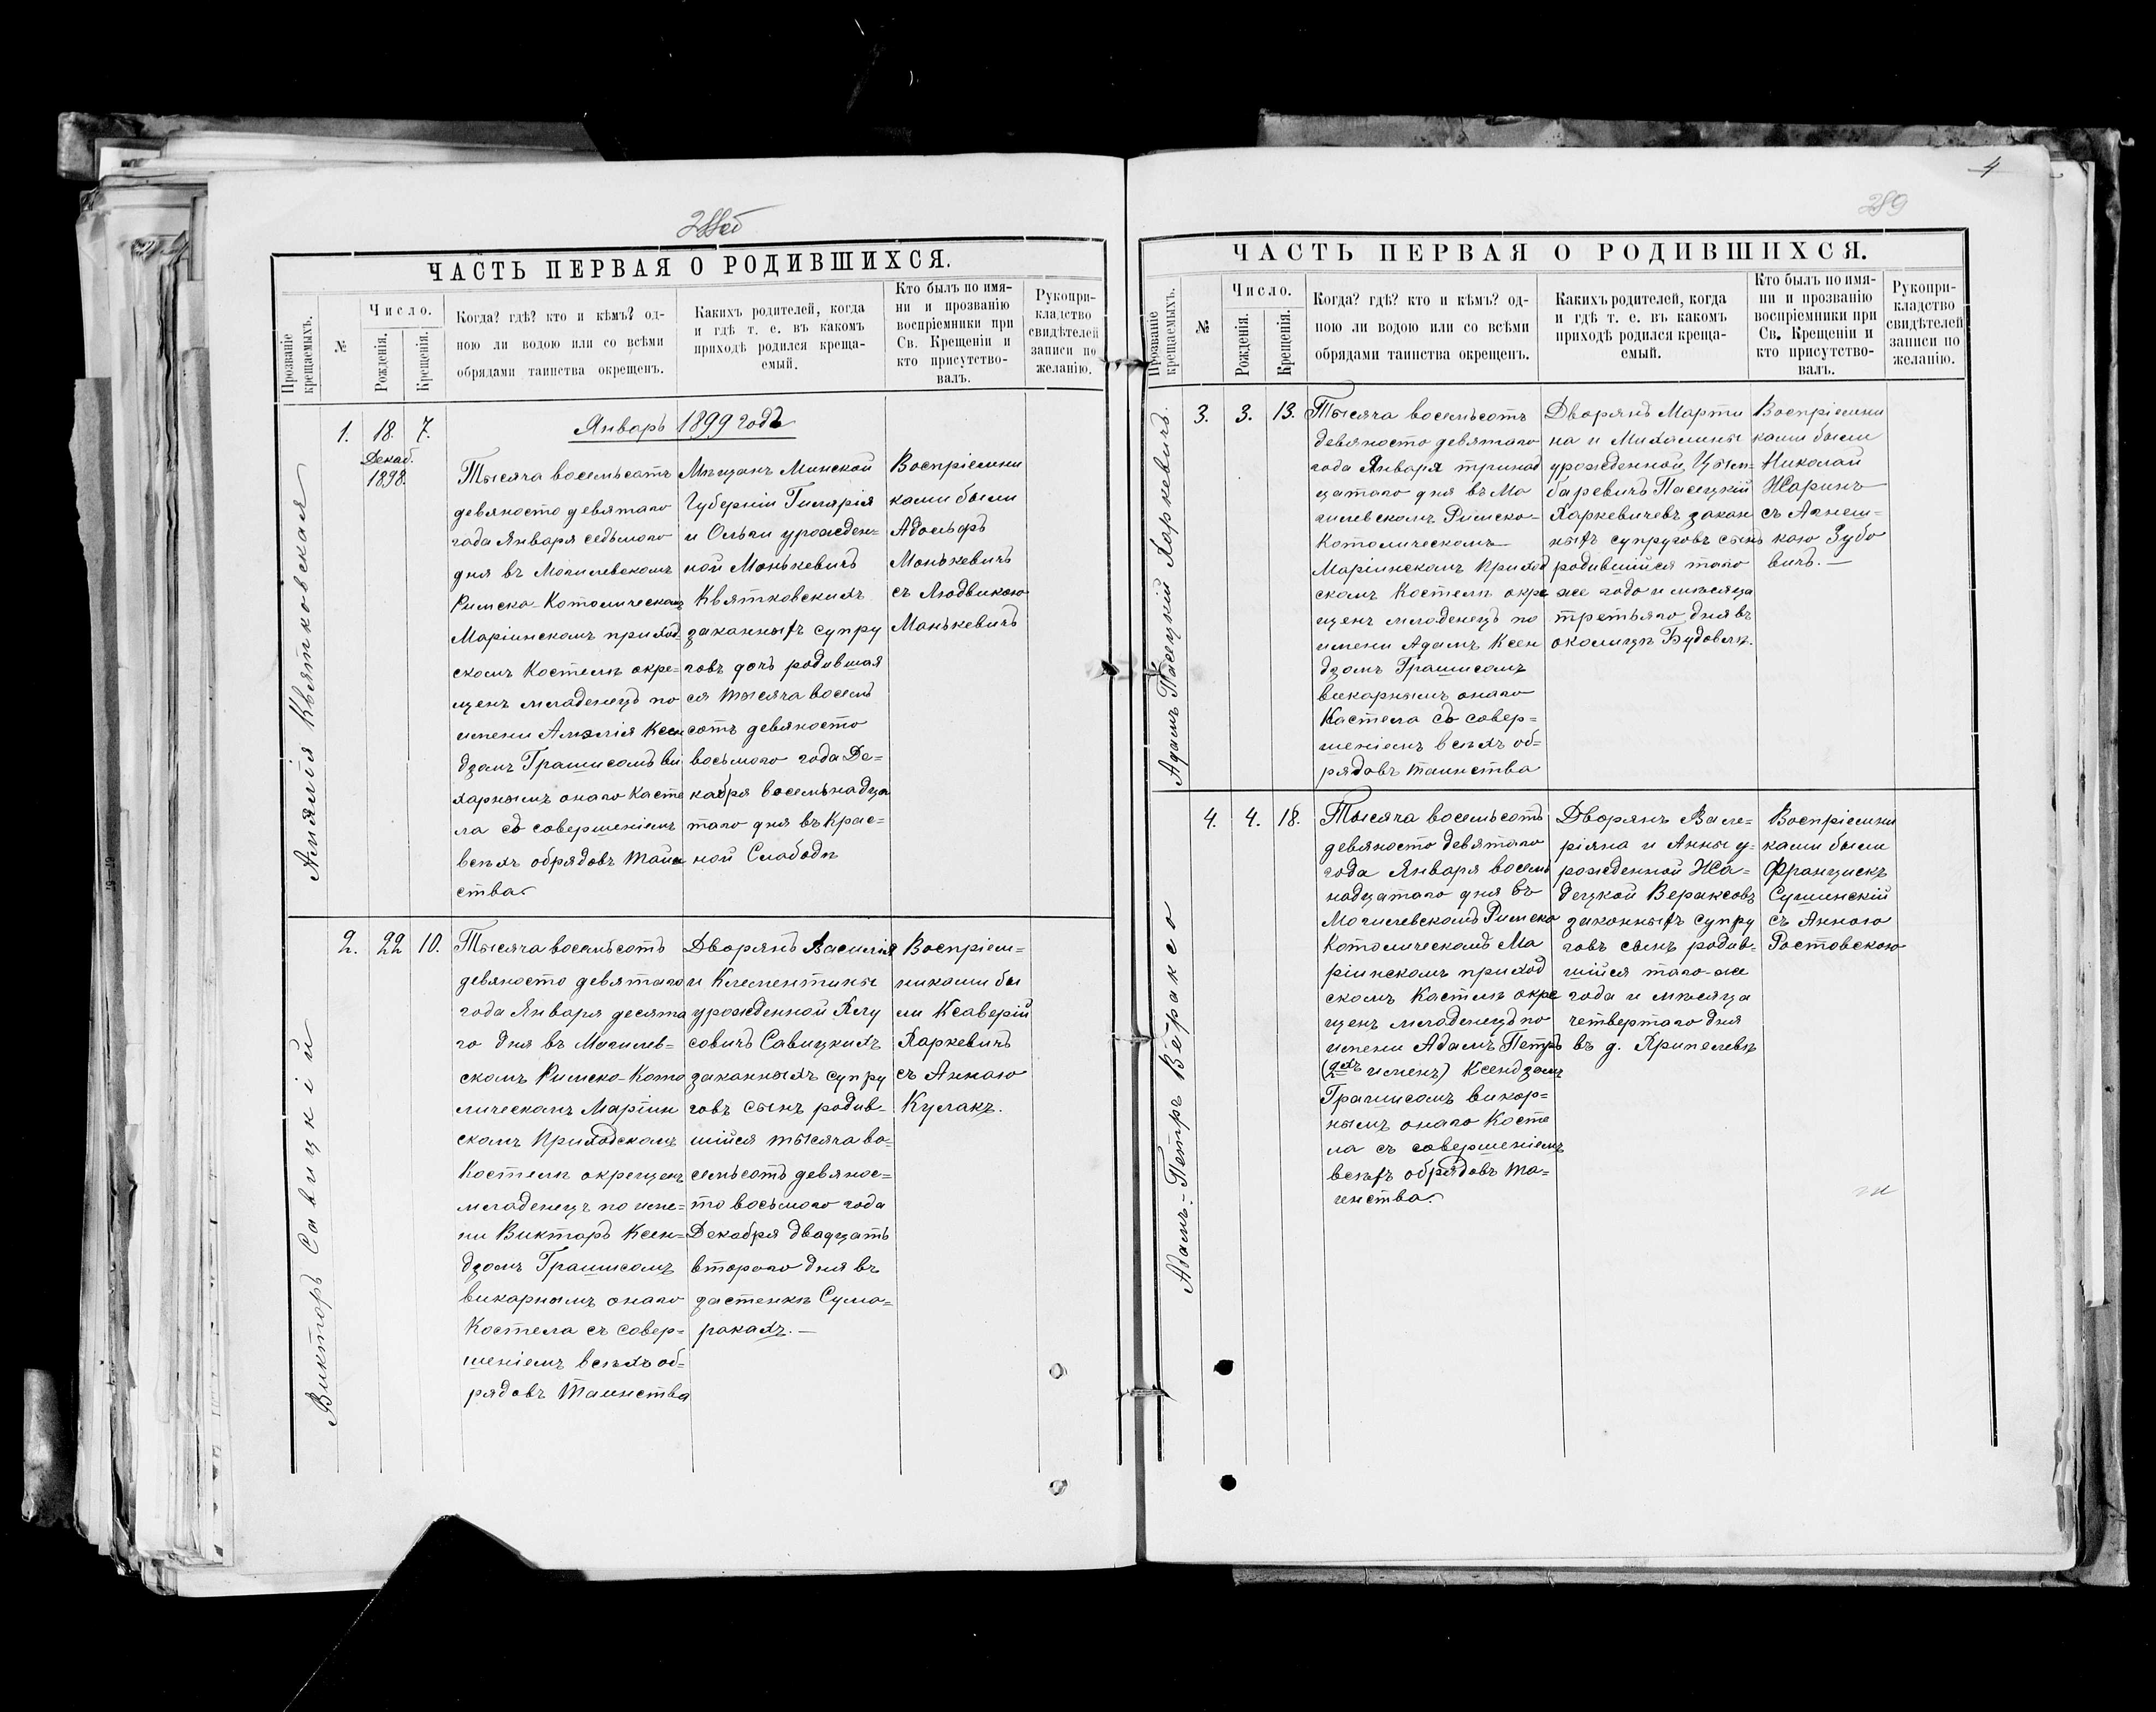 288об
ЧАСТЬ ПЕРВАЯ О РОДИВШИХСЯ.
Прозваніе крещаемыхъ.
№
Число.
Рожденія.
Крещенія.
Когда? гдѣ? кто и кѣмъ? од-
ною ли водою или со всѣми
обрядами таинства окрещенъ.
Какихъ родителей, когда
и гдѣ т. е. въ какомъ
приходѣ родился креща-
емый.
Кто былъ по имя-
ни и прозванію
воспріемники при
Св. Крещеніи и
кто присутство-
валъ.
Рукопри-
кладство
свидѣтелей
записи по
желанію.
Январь 1899 года
Амэлія Квятковская
1.
18.
Декаб.
1898.
7.
Тысяча восемьсотъ
девяносто девятаго
года Января седьмого
дня въ Могилевскомъ
Римско-Католическомъ
Маріинскомъ приход
скомъ Костелѣ окре-
щенъ младенецъ по
имени Амэлія Ксен
дзомъ Грашисомъ ви
карнымъ онаго Касте
ла съ совершеніемъ
всѣхъ обрядовъ Таин
ства
Мѣщанъ Минской
Губерніи Гилярія
и Ольги урожден-
ной Монькевичъ
Квятковскихъ
законныхъ супру
говъ дочь родившая
ся тысяча восемь
сотъ девяносто
восьмого года Де-
кабря восемьнадца
таго дня въ Крас-
ной Слабодѣ
Воспріемни
ками были
Адольфъ
Монькевичъ
съ Людвикою
Манькевичъ
Викторъ Савицкій
2.
22
10.
Тысяча восемьсотъ
девяносто девятаго
года Января десята
го дня въ Могилев-
скомъ Римско-Като
лическомъ Маріин
скомъ Приходскомъ
Костелѣ окрещенъ
младенецъ по име-
ни Викторъ Ксен-
дзомъ Грашисомъ
викарнымъ онаго
Костела съ совер-
шеніемъ всѣхъ об-
рядовъ Таинства
Дворянъ Василія
и Клементины
урожденной Клу
совичъ Савицкихъ
законныхъ супру
говъ сынъ родив-
шійся тысяча во-
семьсотъ девянос-
то восьмого года
Декабря двадцать
второго дня въ
застенкѣ Сума-
рокахъ.—
Воспріем-
никами бы
ли Ксаверій
Харкевичъ
съ Анною
Кулакъ.
4
289
ЧАСТЬ ПЕРВАЯ О РОДИВШИХСЯ.
Прозваніе крещаемыхъ.
№
Число.
Рожденія.
Крещенія.
Когда? гдѣ? кто и кѣмъ? од-
ною ли водою или со всѣми
обрядами таинства окрещенъ.
Какихъ родителей, когда
и гдѣ т. е. въ какомъ
приходѣ родился креща-
емый.
Кто былъ по имя-
ни и прозванію
воспріемники при
Св. Крещеніи и
кто присутство-
валъ.
Рукопри-
кладство
свидѣтелей
записи по
желанію.
Адамъ Пасецкій Харкевичъ.
3.
3.
13.
Тысяча восемьсотъ
девяносто девятаго
года Января тринад
цатаго дня въ Мо
гилевскомъ Римско-
Католическомъ
Маріинскомъ Приход
скомъ Костелѣ окре
щенъ младенецъ по
имени Адамъ Ксен
дзомъ Грашисомъ
викарнымъ онаго
Кастела съ совер-
шеніемъ всѣхъ об-
рядовъ таинства
Дворянъ Марти
на и Михалины
урожденной Цым-
баревичъ Пасецкій
Харкевичевъ закон
ныхъ супруговъ сынъ
родившійся того
же года и мѣсяца
третьяго дня въ
околицѣ Будовлѣ.
Воспріемни
ками были
Николай
Жаринъ
съ Агнеш-
кою Зубо
вичъ.—
Адамъ-Петръ Вераксо
4.
4.
18.
Тысяча восемьсотъ
девяносто девятаго
года Января восемь
надцатаго дня въ
Могилевскомъ Римско
Католическомъ Ма
ріинскомъ приход
скомъ Кастелѣ окре
щенъ младенецъ по
имени Адамъ Петръ
(2хъ именъ) Ксендзомъ
Грашисомъ викар-
нымъ онаго Косте
ла съ совершеніемъ
всѣхъ обрядовъ Та-
инства.
Дворянъ Вале-
ріяна и Анны у-
рожденной Жа-
децкой Вераксовъ
законныхъ супру
говъ сынъ родив-
шійся того-же
года и мѣсяца
четвертаго дня
въ д. Крипелевѣ
Воспріемни
ками были
Францискъ
Сушинскій
съ Анною
Ростовскою